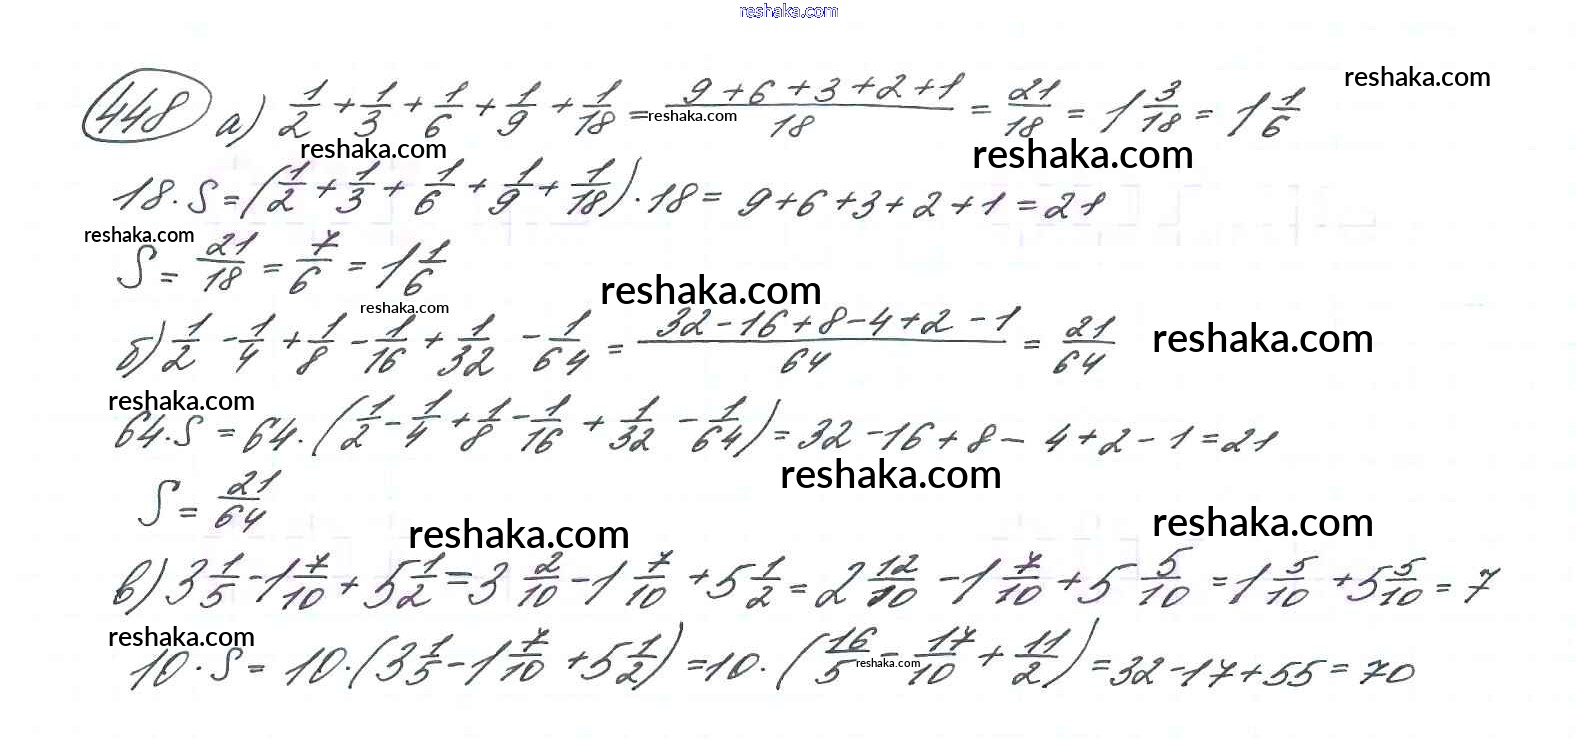 reshaka.com
reshaka.com
448 а) 1/2 + 1/3 + 1/6 + 1/9 + 1/18 = (9+6+3+2+1)/18 = 21/18 = 1 3/18 = 1 1/6
reshaka.com
reshaka.com
reshaka.com
18·S = (1/2 + 1/3 + 1/6 + 1/9 + 1/18)·18 = 9+6+3+2+1 = 21
reshaka.com
S = 21/18 = 7/6 = 1 1/6
reshaka.com
reshaka.com
б) 1/2 - 1/4 + 1/8 - 1/16 + 1/32 - 1/64 = (32-16+8-4+2-1)/64 = 21/64
reshaka.com
reshaka.com
64·S = 64·(1/2 - 1/4 + 1/8 - 1/16 + 1/32 - 1/64) = 32-16+8-4+2-1 = 21
reshaka.com
S = 21/64
reshaka.com
reshaka.com
в) 3 1/5 - 1 7/10 + 5 1/2 = 3 2/10 - 1 7/10 + 5 1/2 = 2 12/10 - 1 7/10 + 5 5/10 = 1 5/10 + 5 5/10 = 7
reshaka.com
10·S = 10·(3 1/5 - 1 7/10 + 5 1/2) = 10·(16/5 - 17/10 + 11/2) = 32-17+55 = 70
reshaka.com